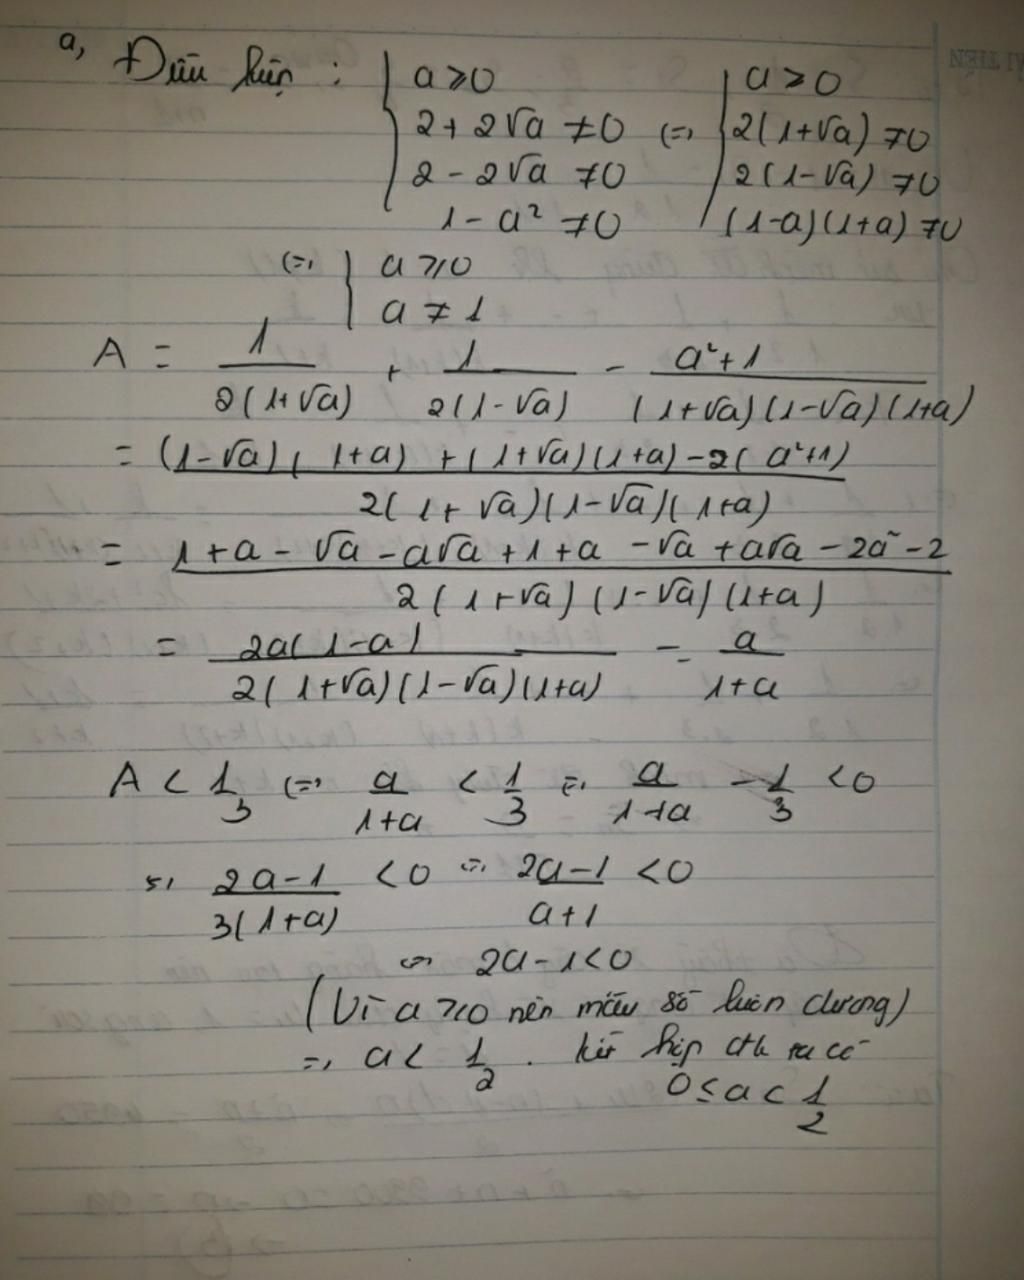 a, Điều kiện : { a ≥ 0 { a ≥ 0
2 + 2√a ≠ 0 (=) 2(1+√a) ≠ 0
2 - 2√a ≠ 0 2(1-√a) ≠ 0
1 - a² ≠ 0 (1-a)(1+a) ≠ 0
(=) { a ≥ 0
a ≠ 1
A = 1/(2(1+√a)) + 1/(2(1-√a)) - (a²+1)/((1+√a)(1-√a)(1+a))
= ((1-√a)(1+a) + (1+√a)(1+a) - 2(a²+1))/(2(1+√a)(1-√a)(1+a))
= (1+a-√a-a√a+1+a-√a+a√a-2a²-2)/(2(1+√a)(1-√a)(1+a))
= (2a(1-a))/(2(1+√a)(1-√a)(1+a)) = a/(1+a)
A < 1/3 (=) a/(1+a) < 1/3 (=) a/(1+a) - 1/3 < 0
(=) (2a-1)/(3(1+a)) < 0 (=) (2a-1)/(a+1) < 0
(=) 2a-1 < 0
(Vì a ≥ 0 nên mẫu số luôn dương)
=> a < 1/2 . kết hợp đk ta có
0 ≤ a < 1/2